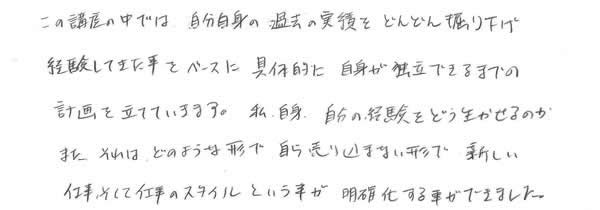 この講座の中では、自分自身の過去の実績をどんどん掘り下げ
経験してきた事をベースに具体的に自身が独立できるまでの
計画を立てていきます。私自身、自分の経験をどう生かせるのか
また、それは、どのような形で自ら売り込まない形で新しい
仕事、そして仕事のスタイルという事が明確化する事ができました。